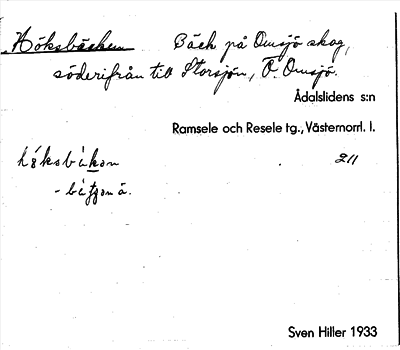 Höksbäcken Bäck på Omsjö skog,
söderifrån till Storsjön, Ö. Omsjö.
Ådalslidens s:n
Ramsele och Resele tg., Västernorrl. l.
211
Sven Hiller 1933